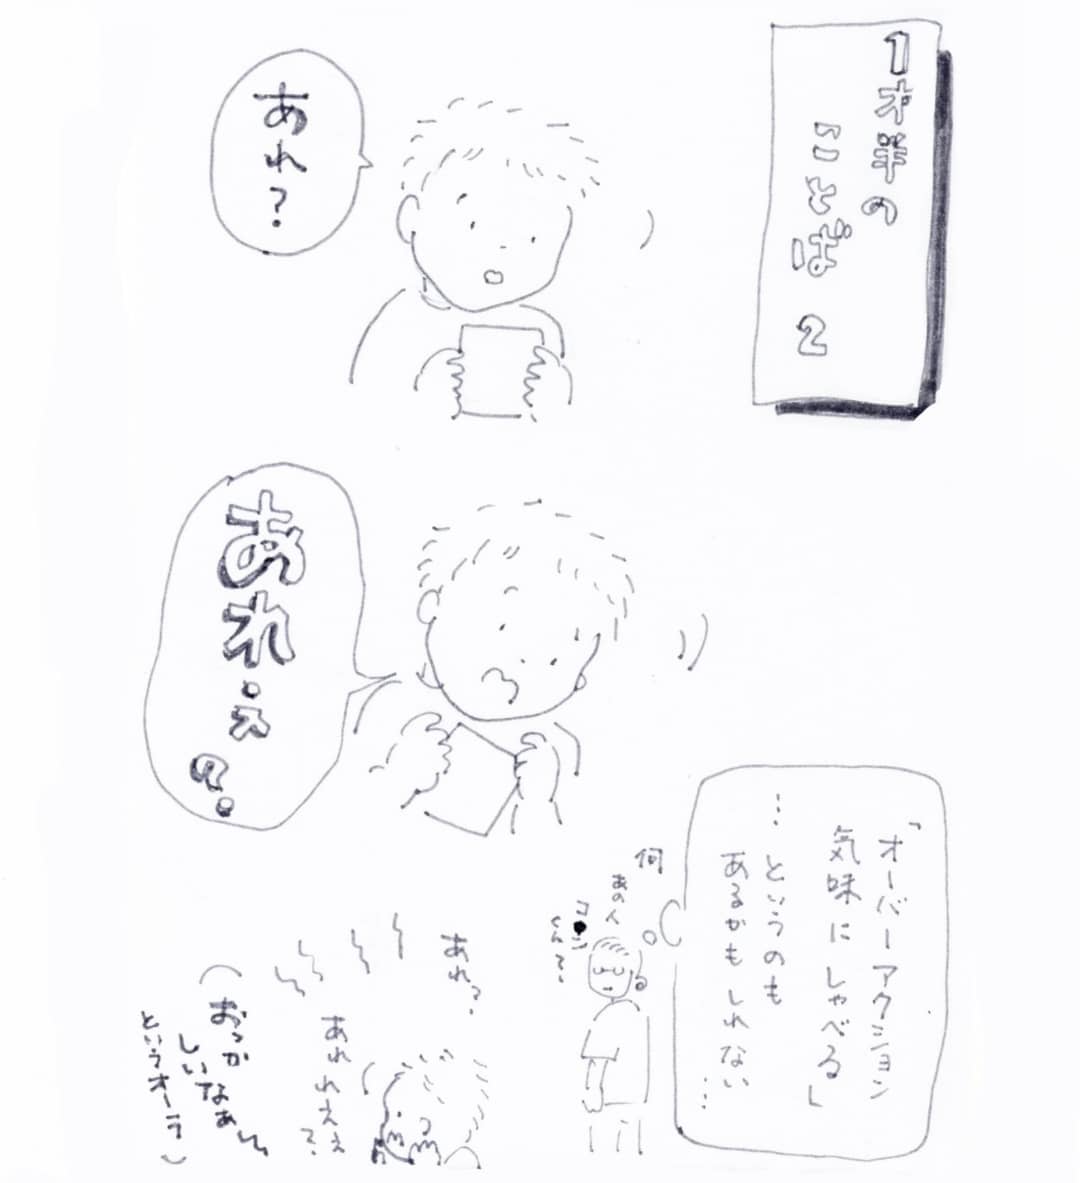 1才半の
ことば 2
あれ?
あれぇ?
「オーバーアクション
気味にしゃべる」
…というのも
あるかもしれない…
何
あの人
コ●ン
くん?
あれ?
あれれぇぇ?
(おっか
しいなぁ
というオーラ)